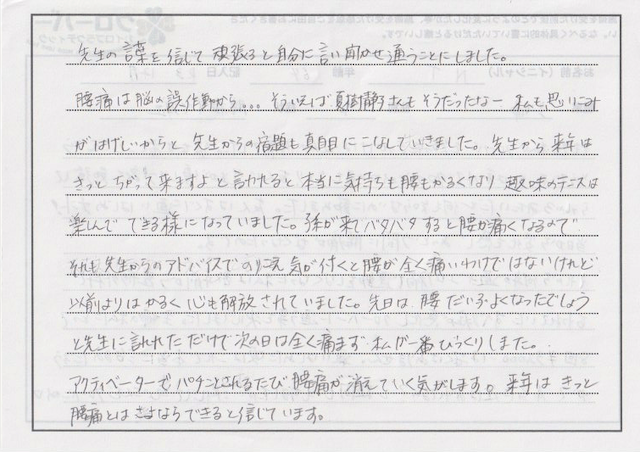 先生の言葉を信じて頑張ると自分に言い聞かせ通うことにしました。
腰痛は脳の誤作動から... そういえば夏樹静子さんもそうだったなー 私も思いこみ
がはげしいからと 先生からの宿題も真面目にこなしていきました。先生から来年は
きっとちがって来ますよと言われると本当に気持ちも腰もかるくなり 趣味のテニスは
楽んでできる様になっていました。孫が来てバタバタすると腰が痛くなるので
それも先生からのアドバイスでのりこえ 気が付くと腰が全く痛いわけではないけれど
以前よりはかるく心も解放されていました。先日は 腰だいぶよくなったでしょう
と先生に言われただけで次の日は全く痛まず 私が一番びっくりしました。
アクティベーターでパチンとされるたび 腰痛が消えていく気がします。来年はきっと
腰痛とはさよならできると信じています。